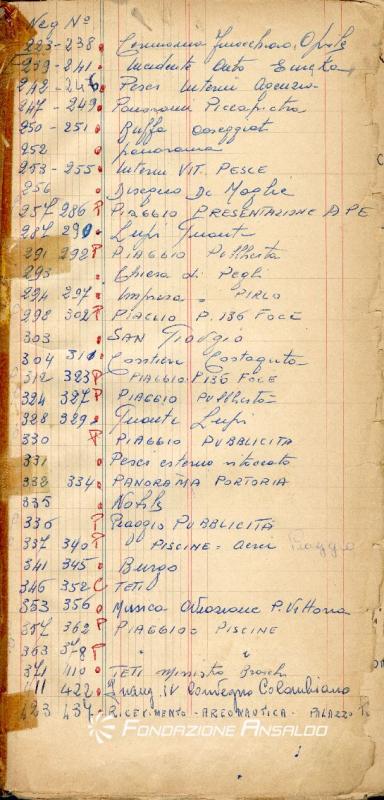 Neg Nº
223-238. Cerimonia
239-241. Incidente Auto
242-246. Pesci Interni Agenzia
247-249. Panorami Piccapietra
250-251. Buffa caseggiati
252 panorama
253-255. Interni VIT. PESCE
256 Disegno De Moglie
257 286 P PIAGGIO PRESENTAZIONE APE
287 290. Lupi Guanti
291 292 P PIAGGIO Pubblicità
293 Chiesa di Pegli
294 297. Impresa. PIRLO
298 302 P PIAGGIO P. 136 FOCE
303 SAN Giorgio
304 311. Cantieri Costaguta
312 323 P PIAGGIO P136 FOCE
324 327 P PIAGGIO Pubblicità
328 329. Guanti Lupi
330 P PIAGGIO PUBBLICITÀ
331 Pesci esterno ritoccato
332 334. PANORAMA PORTORIA
335
336 P Piaggio PUBBLICITÀ
337 340 P " PISCINE = aerei Piaggio
341 345 . Burgo
346 352 C TETI
353 356 . Musica P. Vittoria
357 362 P PIAGGIO = PISCINE
363 378 P " "
371 410 . TETI Ministro
411 422. Inaug. IV Convegno Colombiano
423 437. RICEVIMENTO - AREONAUTICA - PALAZZO
FONDAZIONE ANSALDO